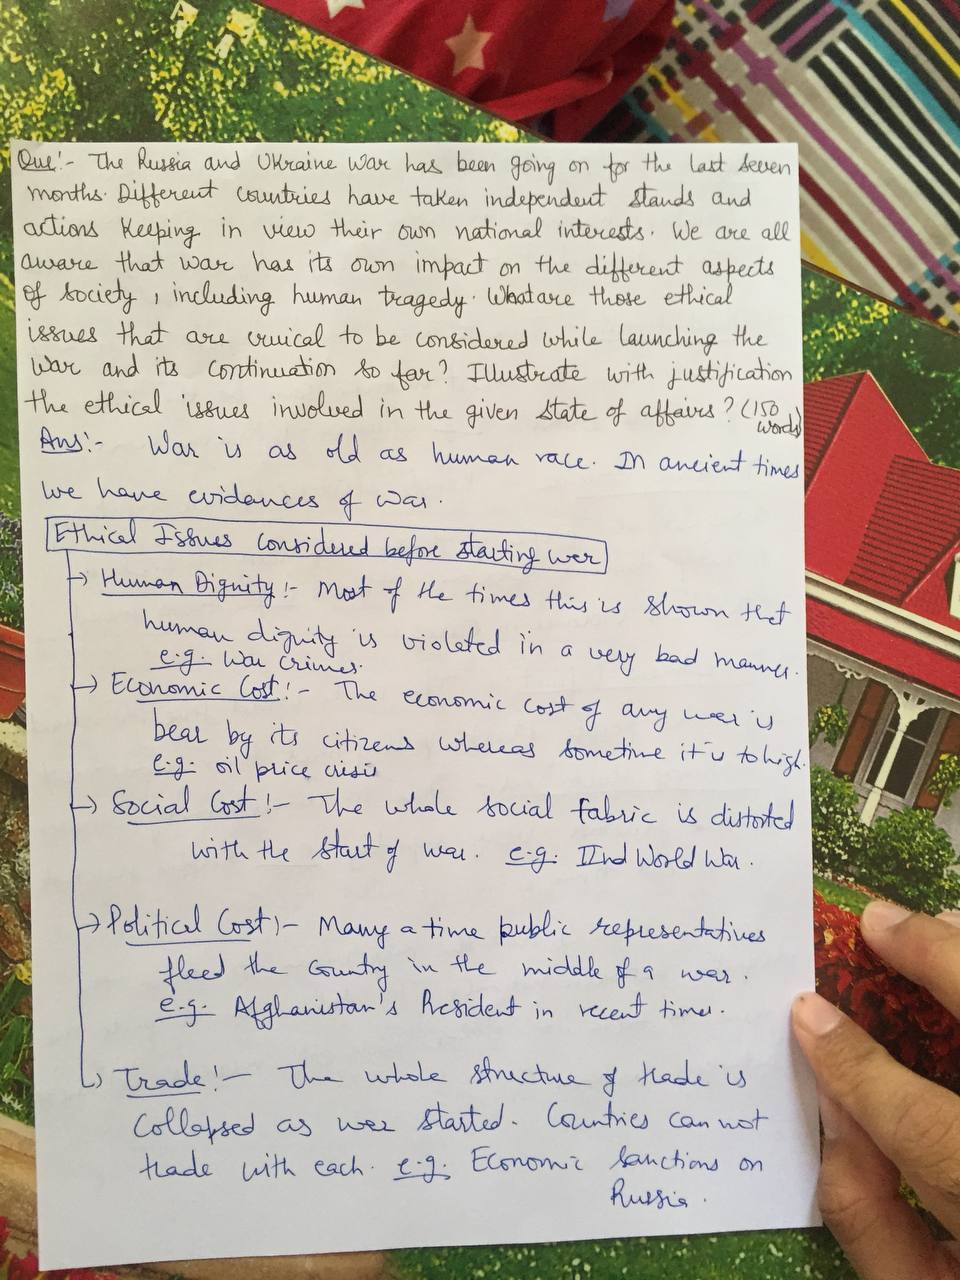 Que:- The Russia and Ukraine war has been going on for the last seven
months. Different countries have taken independent stands and
actions keeping in view their own national interests. We are all
aware that war has its own impact on the different aspects
of society, including human tragedy. What are those ethical
issues that are cruical to be considered while launching the
war and its continuation so far? Illustrate with justification
the ethical issues involved in the given state of affairs? (150
words)
Ans:- War is as old as human race. In ancient times
we have evidances of war.
Ethical Issues considered before starting war
→ Human Dignity:- Most of the times this is shown that
human dignity is violated in a very bad manner.
e.g. War crimes.
→ Economic Cost:- The economic cost of any war is
bear by its citizens whereas sometime it is to high.
e.g. oil price crisis
→ Social Cost:- The whole social fabric is distorted
with the start of war. e.g. IInd World War.
→ Political Cost:- Many a time public representatives
fleed the country in the middle of a war.
e.g. Afghanistan's President in recent times.
→ Trade:- The whole structure of trade is
collapsed as war started. Countries can not
trade with each. e.g. Economic Sanctions on
Russia.